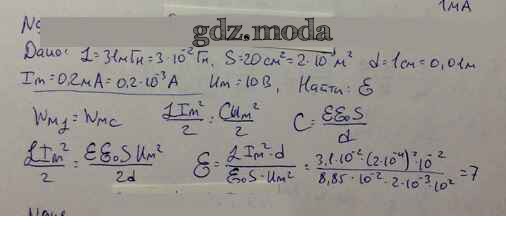 1мА
№
gdz.moda
Дано: L = 31мГн = 3·10⁻² Гн, S = 20см² = 2·10⁻³ м² d = 1см = 0,01м
Im = 0,2мА = 0,2·10⁻³ А Um = 10В, Найти: Ɛ
Wмд = Wмс LIm²/2 = CUm²/2 C = ƐƐ₀S/d
LIm²/2 = ƐƐ₀SUm²/2d Ɛ = LIm²·d/Ɛ₀S·Um² = 3,1·10⁻²·(2·10⁻⁴)²·10⁻²/8,85·10⁻²·2·10⁻³·10² = 7